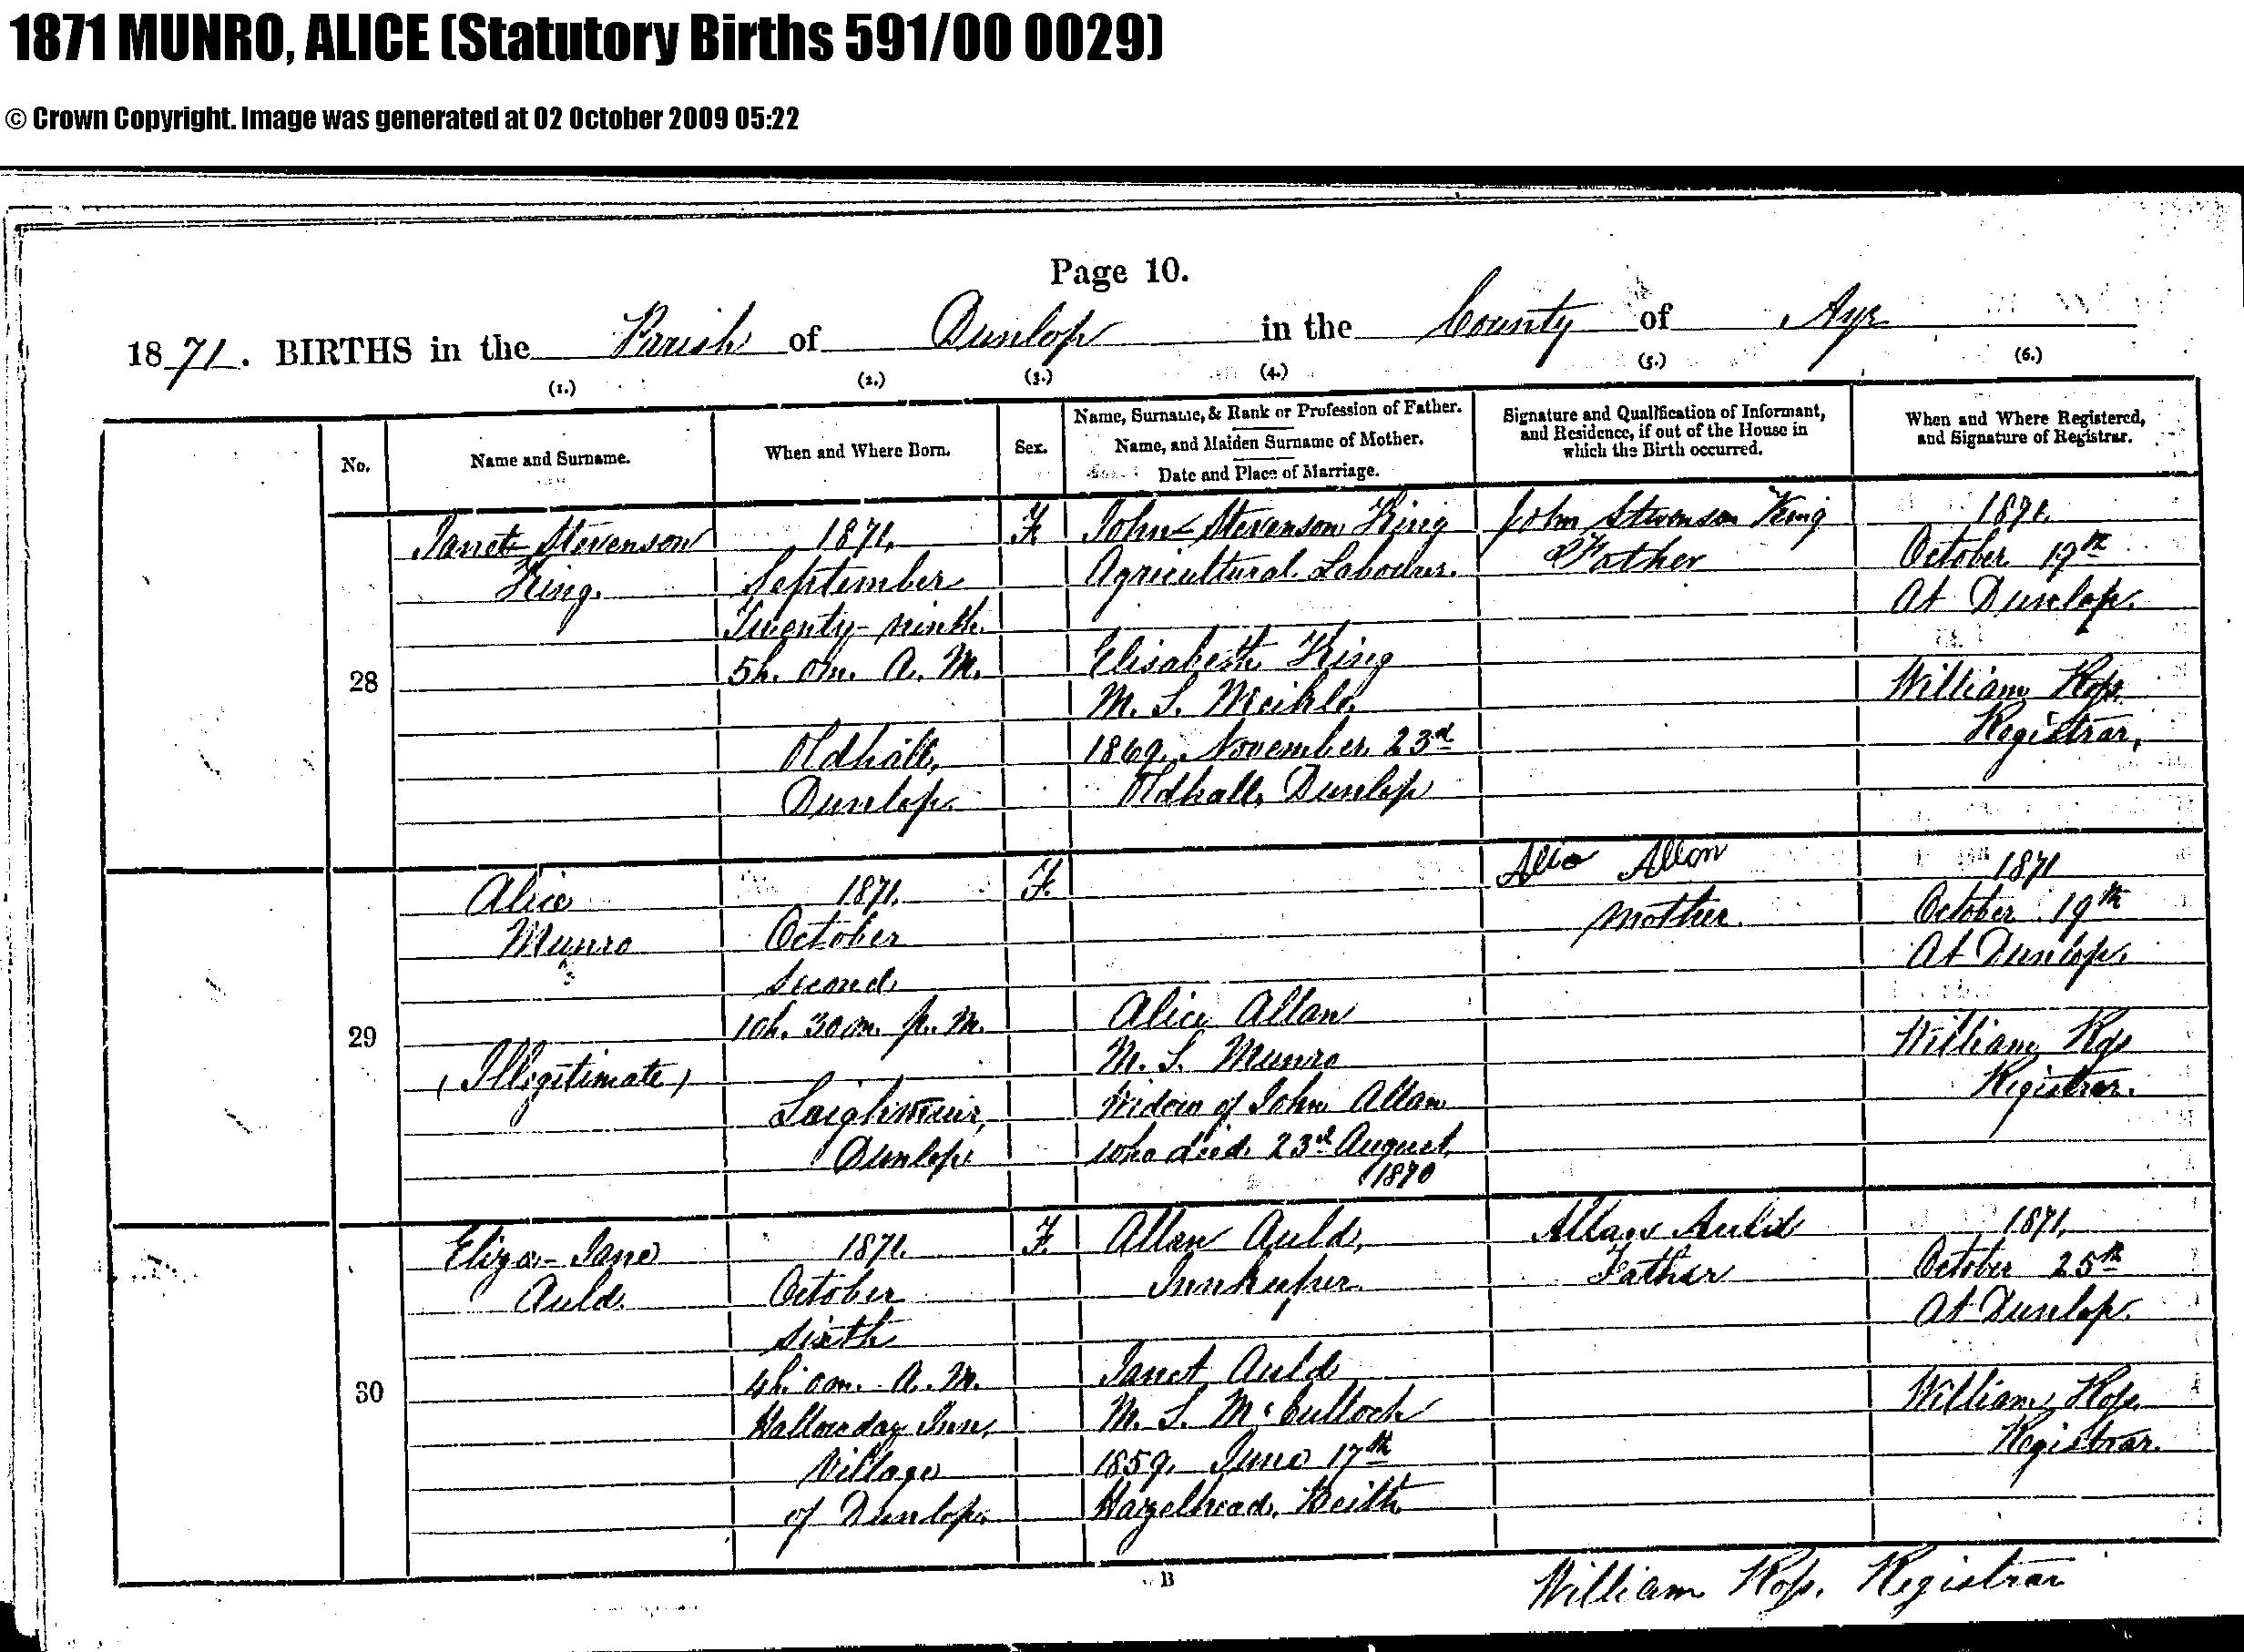 1871 MUNRO, ALICE (Statutory Births 591/00 0029)
© Crown Copyright. Image was generated at 02 October 2009 05:22
Page 10.
1871. BIRTHS in the Parish of Dunlop in the County of Ayr
(1.) (2.) (3.) (4.) (5.) (6.)
No.
Name and Surname.
When and Where Born.
Sex.
Name, Surname, & Rank or Profession of Father.
Name, and Maiden Surname of Mother.
Date and Place of Marriage.
Signature and Qualification of Informant,
and Residence, if out of the House in
which the Birth occurred.
When and Where Registered,
and Signature of Registrar.
28
Janet Stevenson
King.
1871.
September
Twenty-ninth
5h. 0m. A. M.
Oldhall,
Dunlop.
F.
John Stevenson King
Agricultural Labourer.
Elisabeth King
M. S. Meikle.
1869. November 23d
Oldhall, Dunlop
John Stevenson King
Father
1871.
October 19th
At Dunlop.
William Ross
Registrar.
29
Alice
Munro
(Illegitimate)
1871.
October
Second
10h. 30m. P. M.
Laighmuir,
Dunlop
F.
Alice Allan
M. S. Munro
Widow of John Allan
who died 23d August,
1870
Alice Allan
Mother.
1871
October 19th
At Dunlop.
William Ross
Registrar.
30
Eliza-Jane
Auld.
1871.
October
Sixth
4h. 0m. A. M.
Inn,
Village
of Dunlop.
F.
Allan Auld,
Innkeeper
Janet Auld
M. S. McCulloch
1859. June 17th
Hazelhead, Beith
Allan Auld
Father
1871.
October 25th
At Dunlop.
William Ross.
Registrar.
B
William Ross. Registrar